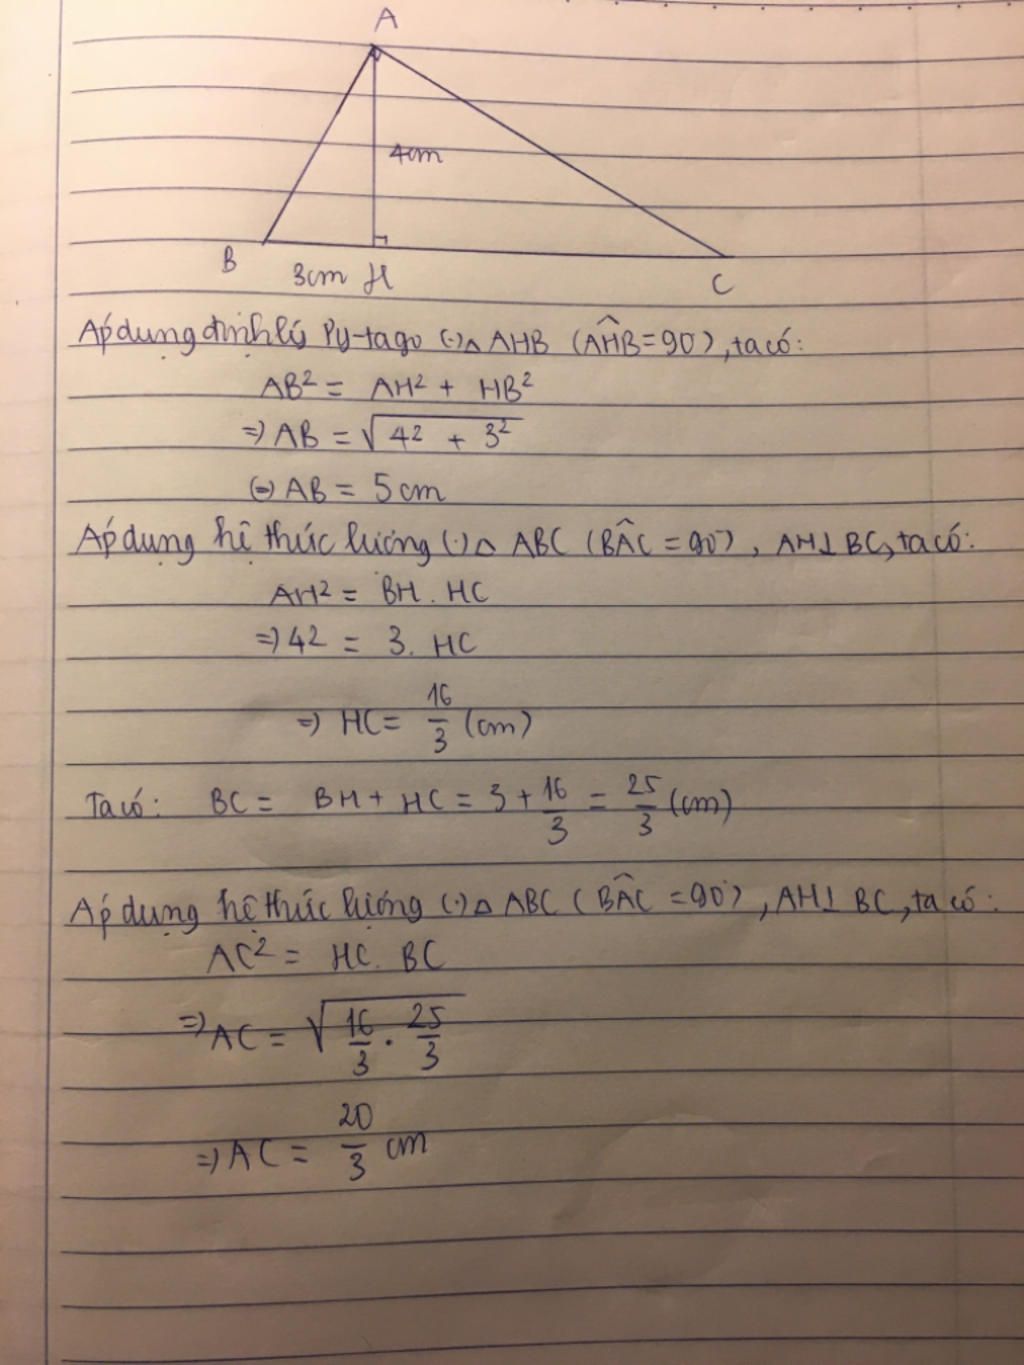 A
4cm
B
3cm H
C
Áp dụng định lý Py-tago (·) △ AHB (AHB̂ = 90°), ta có:
AB² = AH² + HB²
=> AB = √(4² + 3²)
(=) AB = 5cm
Áp dụng hệ thức lượng (·) △ ABC (BAĈ = 90°), AH⊥BC, ta có:
AH² = BH . HC
=> 4² = 3. HC
=> HC = 16/3 (cm)
Ta có: BC = BH + HC = 3 + 16/3 = 25/3 (cm)
Áp dụng hệ thức lượng (·) △ ABC (BAĈ = 90°), AH⊥ BC, ta có:
AC² = HC. BC
=> AC = √(16/3 . 25/3)
=> AC = 20/3 cm